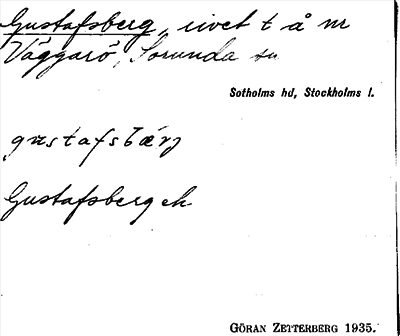 Gustafsberg, rivet t å nr
Väggarö, Sorunda sn
Sotholms hd, Stockholms l.
gustafsbærj
Gustafsberg ek
GÖRAN ZETTERBERG 1935.